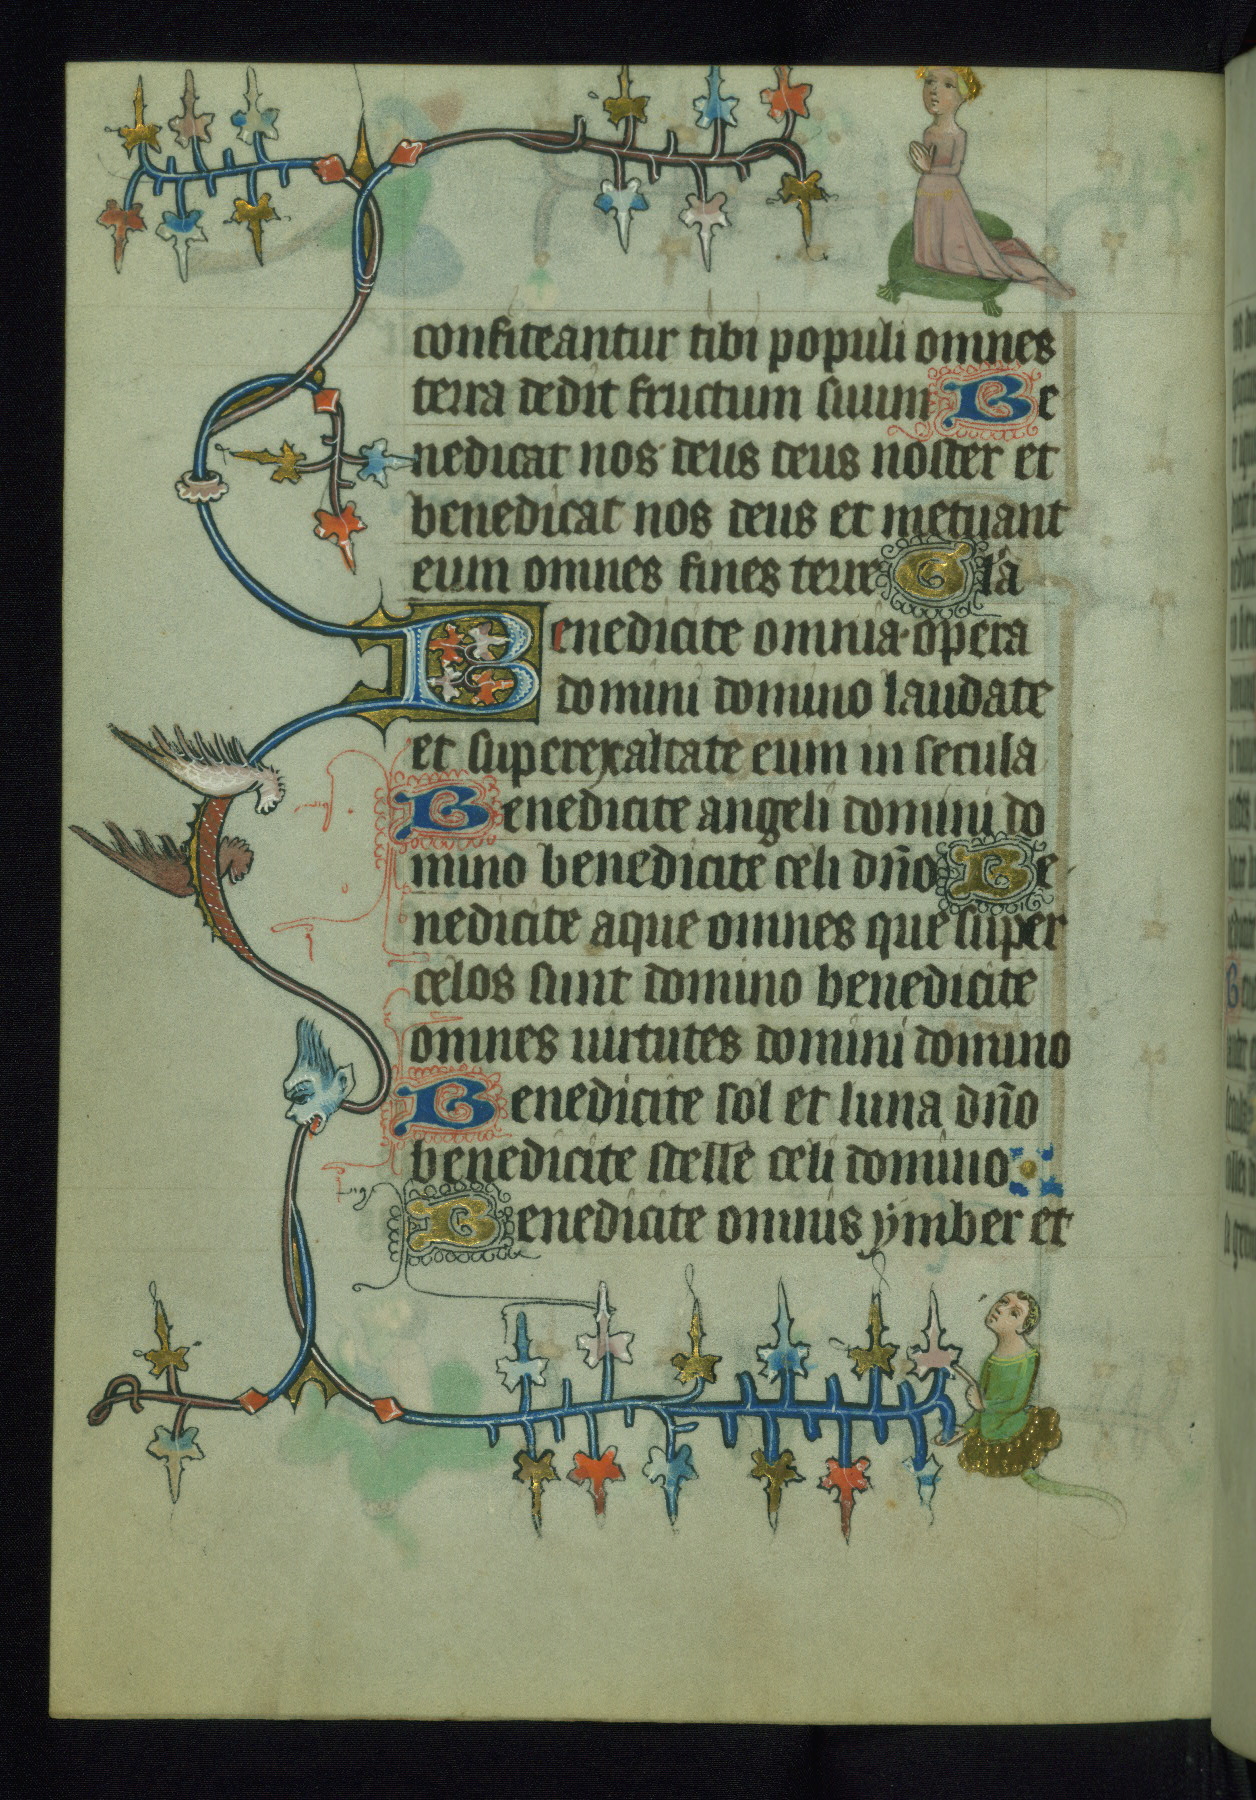 confiteantur tibi populi omnes
terra dedit fructum suum Be
nedicat nos deus deus noster et
benedicat nos deus et metuant
eum omnes fines terre Gla
Benedicite omnia opera
domini domino laudate
et superexaltate eum in secula
Benedicite angeli domini do
mino benedicite celi dño Be
nedicite aque omnes que super
celos sunt domino benedicite
omnes uirtutes domini domino
Benedicite sol et luna dño
benedicite stelle celi domino
Benedicite omnis ymber et